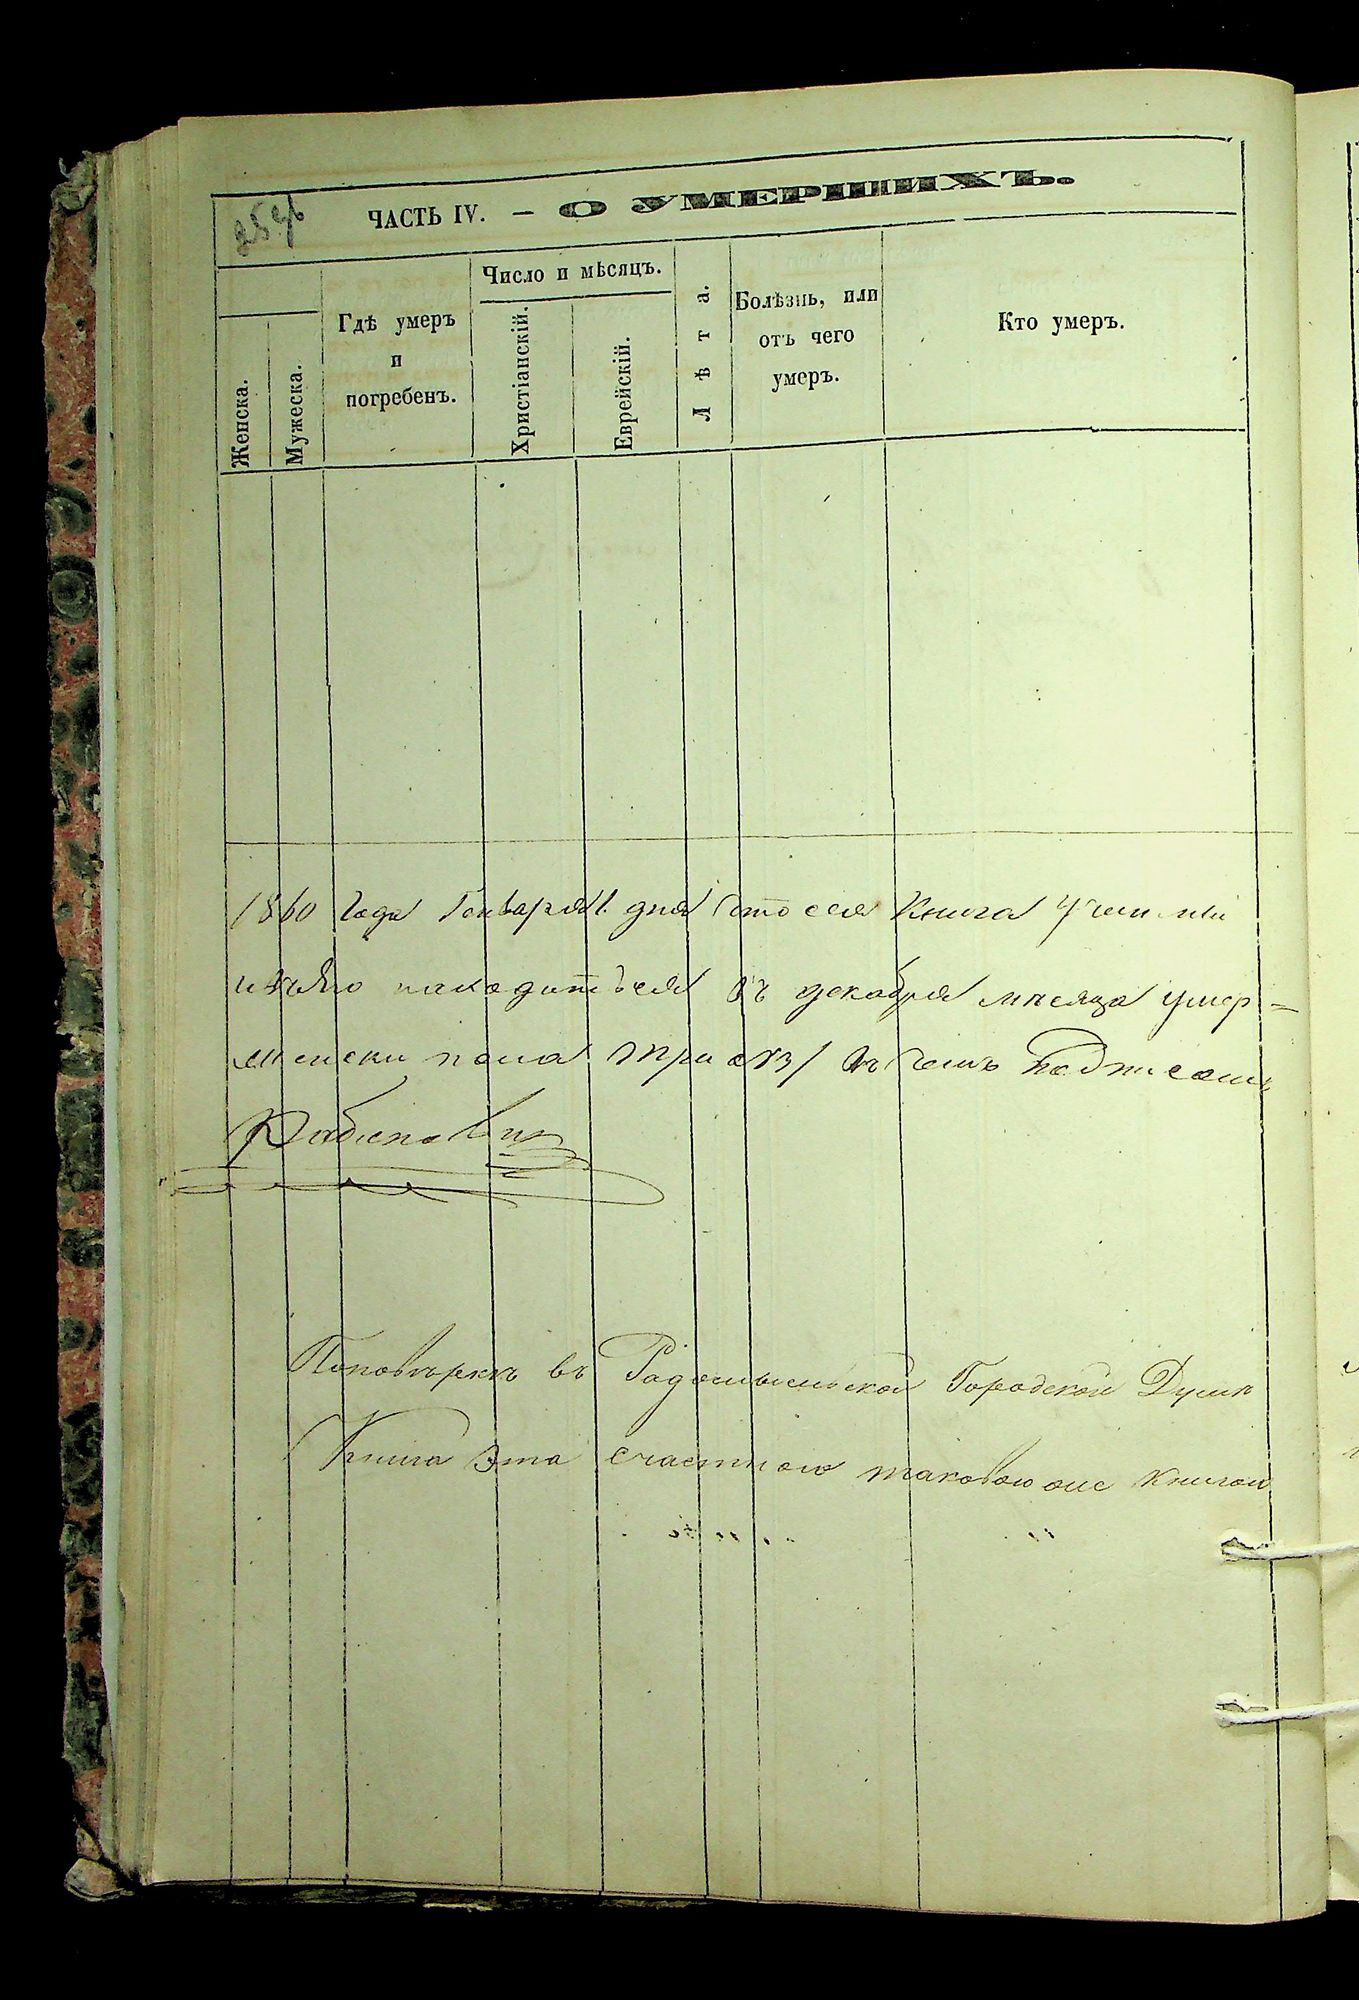 ЧАСТЬ IV. — О УМЕРШИХЪ.
Женска.
Мужеска.
Гдѣ умеръ
и
погребенъ.
Число и мѣсяцъ.
Христіанскій.
Еврейскій.
Лѣта.
Болѣзнь, или
отъ чего
умеръ.
Кто умеръ.
1860 Года Генваря 1. дня сія Книга
находится въ декабря мѣсяца умер=
пола три въ чемъ Подписомъ
Рабинович
въ Радомысльской Городской Думѣ
Книга Эта таковою же Книгою